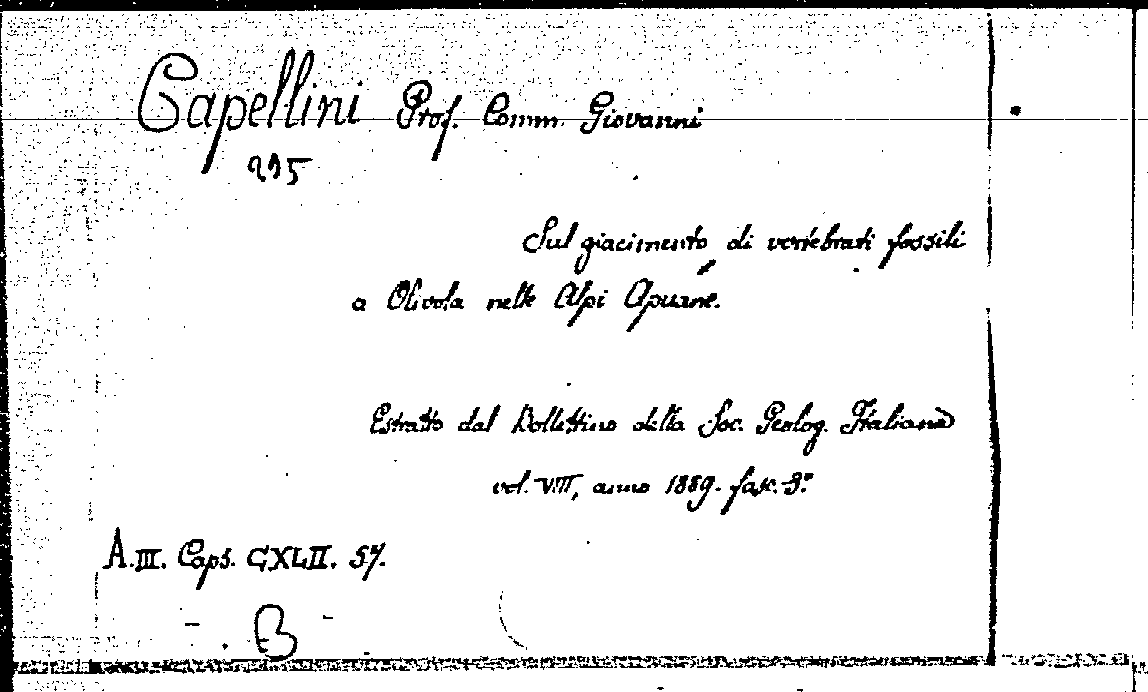 Capellini Prof. Comm. Giovanni
295
Sul giacimento di vertebrati fossili
a Olivola nelle Alpi Apuane.
Estratto dal Bollettino della Soc. Geolog. Italiana
vol. VIII, anno 1889. fasc. 3º
A. III. Caps. CXLII. 57.
B